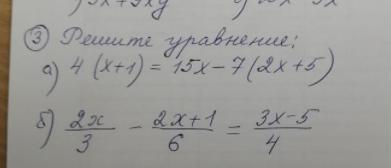 ③ Решите уравнение:
а) 4(x+1) = 15x - 7(2x+5)
б) \frac{2x}{3} - \frac{2x+1}{6} = \frac{3x-5}{4}